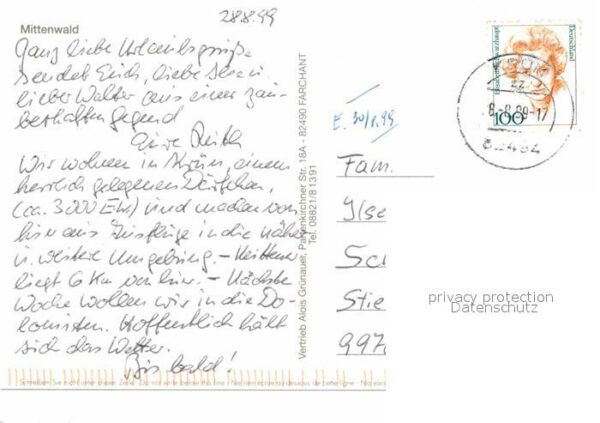 28.8.99
Mittenwald
Ganz liebe Urlaubsgrüße
sendet Euch, liebe Ilse u.
lieber Walter aus einer zau-
berhaften Gegend
Eure
Wir wohnen in Krün, einem
herrlich gelegenen Dörfchen,
(ca. 3000 Ew) und machen von
hier aus Ausflüge in die nähere
u. weitere Umgebung. – Mittenw.
liegt 6 Km von hier. – Nächste
Woche wollen wir in die Do-
lomiten. Hoffentlich hält
sich das Wetter.
Bis bald!
Vertrieb Alois Grünauer, Partenkirchner Str. 18A - 82490 FARCHANT
Tel. 08821/81391
E. 30/8.99
Deutschland
Elisabeth Schwarzhaupt
100
82494
Fam.
Ilse
Sc
Stie
997
privacy protection
Datenschutz
Schreiben Sie nicht unter dieser Zeile · Do not write below this line · N'ecrivez rien au-dessous de cette ligne · Niet